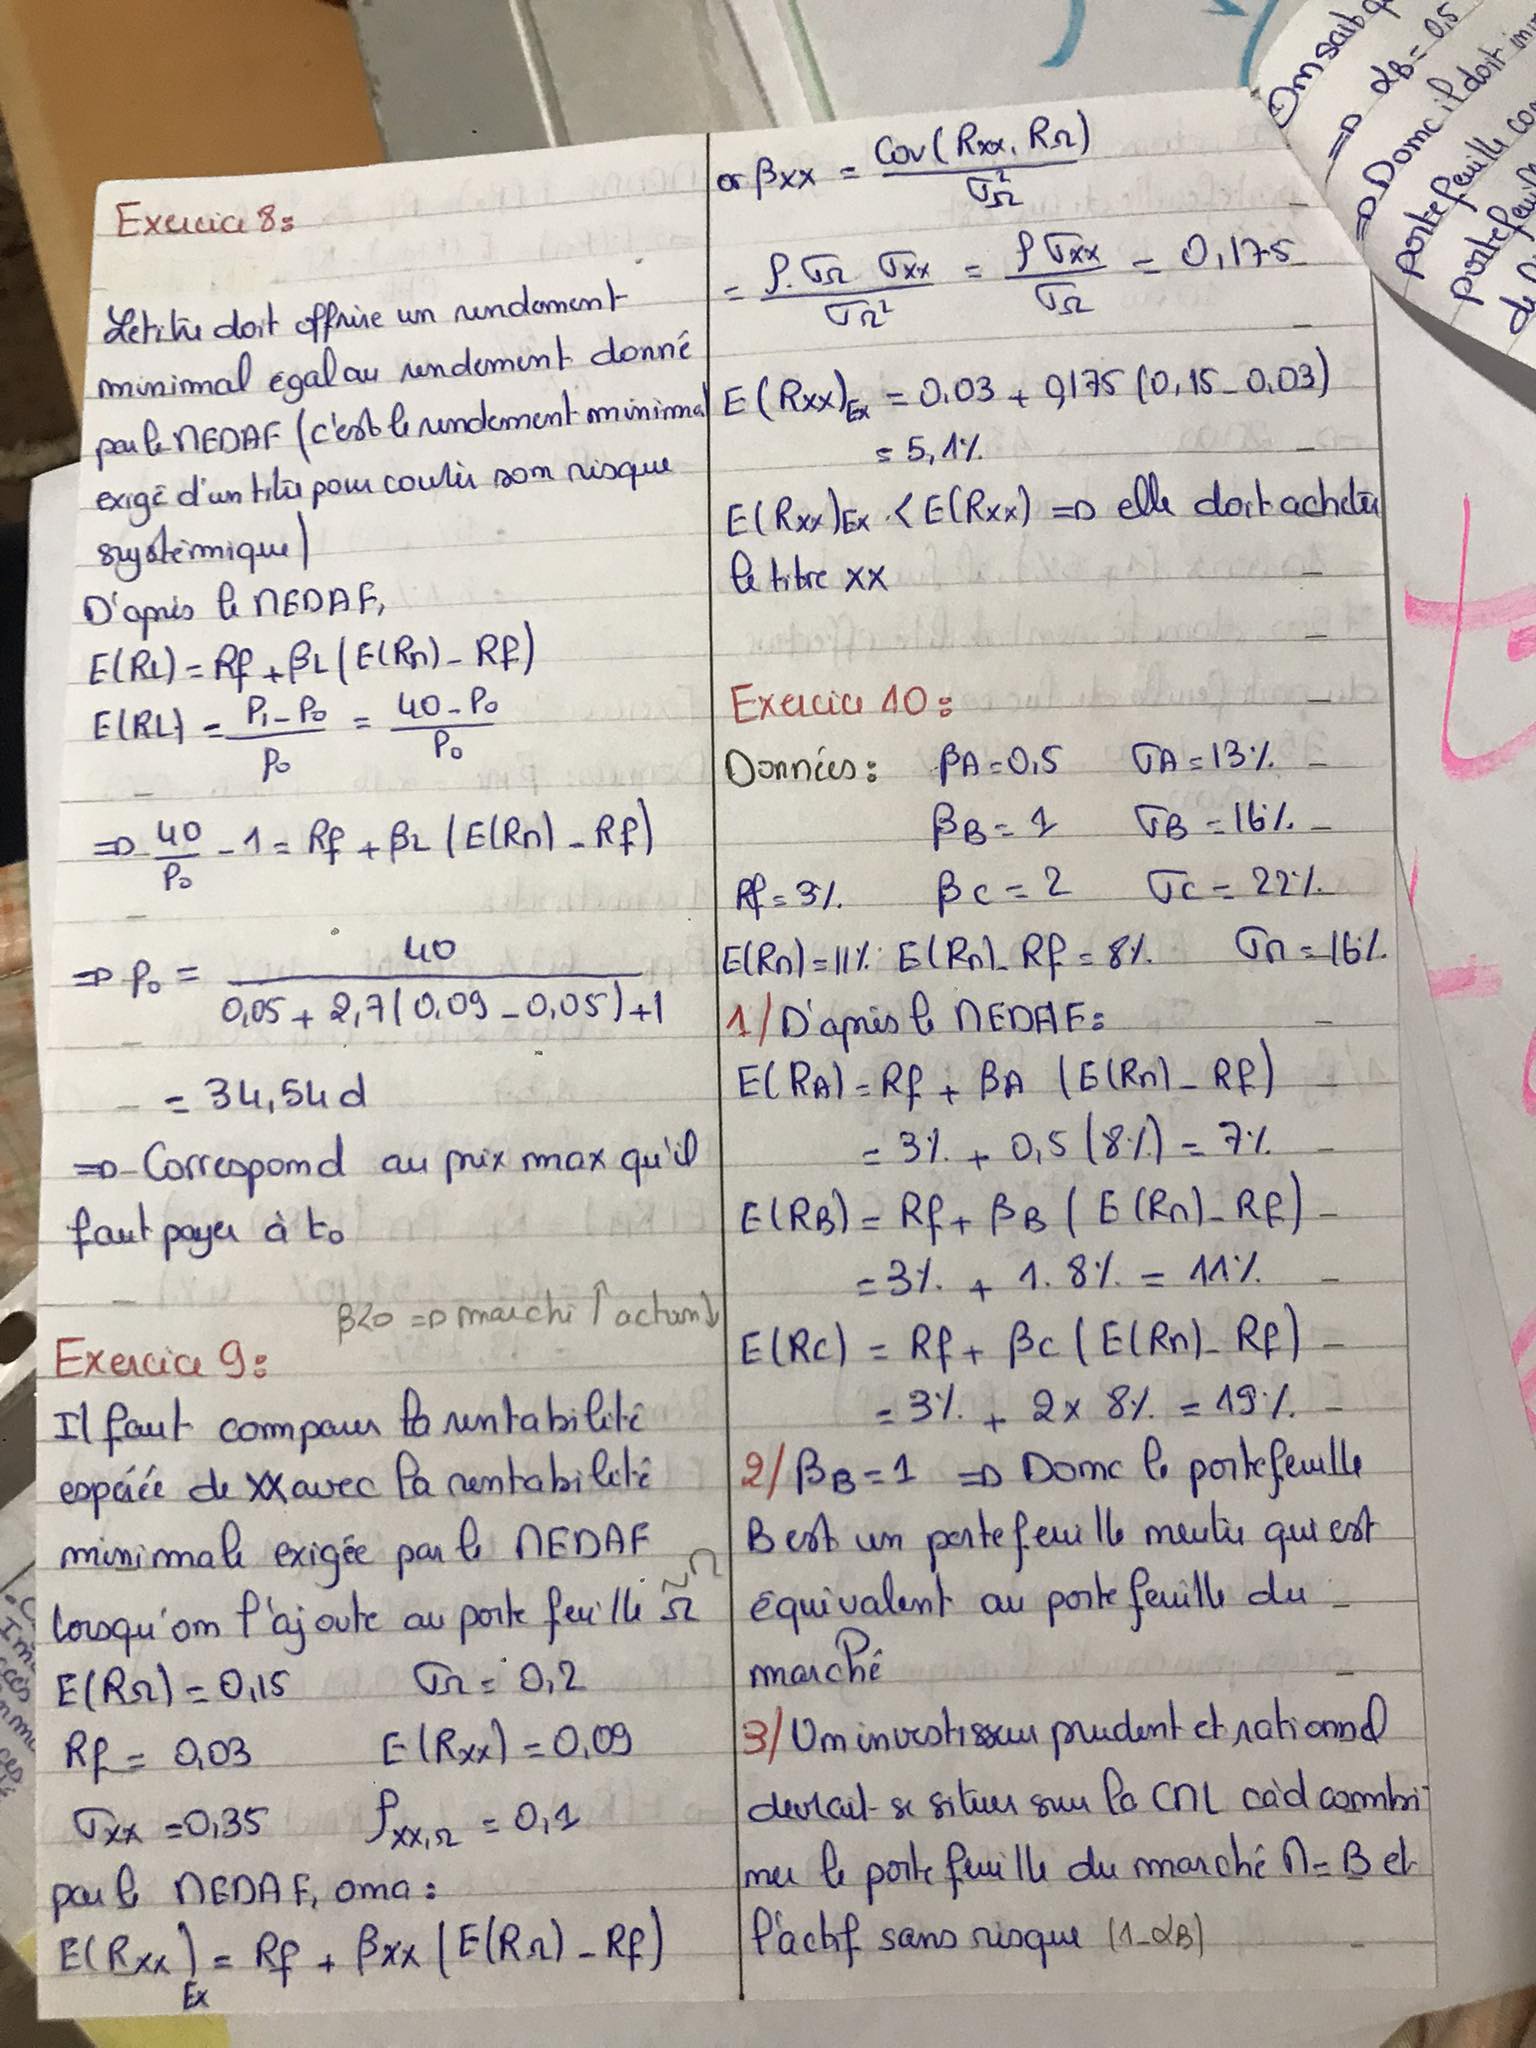 Exercice 8:
Le titre doit offrire un rendement
minimal égal au rendement donné
par le MEDAF (c'est le rendement minimal
exigé d'un titre pour couvrir son risque
systémique)
D'après le MEDAF,
E(RL) = Rf + βL (E(RM) - Rf)
E(RL) = (P1 - P0) / P0 = (40 - P0) / P0
=> 40/P0 - 1 = Rf + βL (E(RM) - Rf)
=> P0 = 40 / (0,05 + 2,7(0,09 - 0,05) + 1)
= 34,54 d
=> Correspond au prix max qu'il
faut payer à t0
β<0 => marché ↑ action ↓
Exercice 9:
Il faut comparer la rentabilité
espérée de XX avec la rentabilité
minimale exigée par le MEDAF
lorsqu'on l'ajoute au portefeuille Ω ~ M
E(RΩ) = 0,15 σΩ = 0,2
Rf = 0,03 E(Rxx) = 0,09
σxx = 0,35 ρxx,Ω = 0,1
par le MEDAF, on a :
E(Rxx)Ex = Rf + βxx (E(RΩ) - Rf)
or βxx = Cov(Rxx, RΩ) / σ²Ω
= ρ.σΩ σxx / σΩ² = ρ σxx / σΩ = 0,175
E(Rxx)Ex = 0,03 + 0,175 (0,15 - 0,03)
= 5,1%
E(Rxx)Ex < E(Rxx) => elle doit acheter
le titre XX
Exercice 10:
Données: βA = 0,5 σA = 13%
βB = 1 σB = 16%
Rf = 3% βC = 2 σC = 22%
E(RM) = 11% E(RM) - Rf = 8% σM = 16%
1/ D'après le MEDAF:
E(RA) = Rf + βA (E(RM) - Rf)
= 3% + 0,5 (8%) = 7%
E(RB) = Rf + βB (E(RM) - Rf)
= 3% + 1. 8% = 11%
E(RC) = Rf + βC (E(RM) - Rf)
= 3% + 2 x 8% = 19%
2/ βB = 1 => Donc le portefeuille
B est un portefeuille neutre qui est
équivalent au portefeuille du
marché
3/ Un investisseur prudent et rationnel
devrait se situer sur la CML càd combi
ner le portefeuille du marché M = B et
l'actif sans risque (1-αB)
On sait q
=> αB = 0,5
=> Donc il doit in
portefeuille co
portefeuil
de